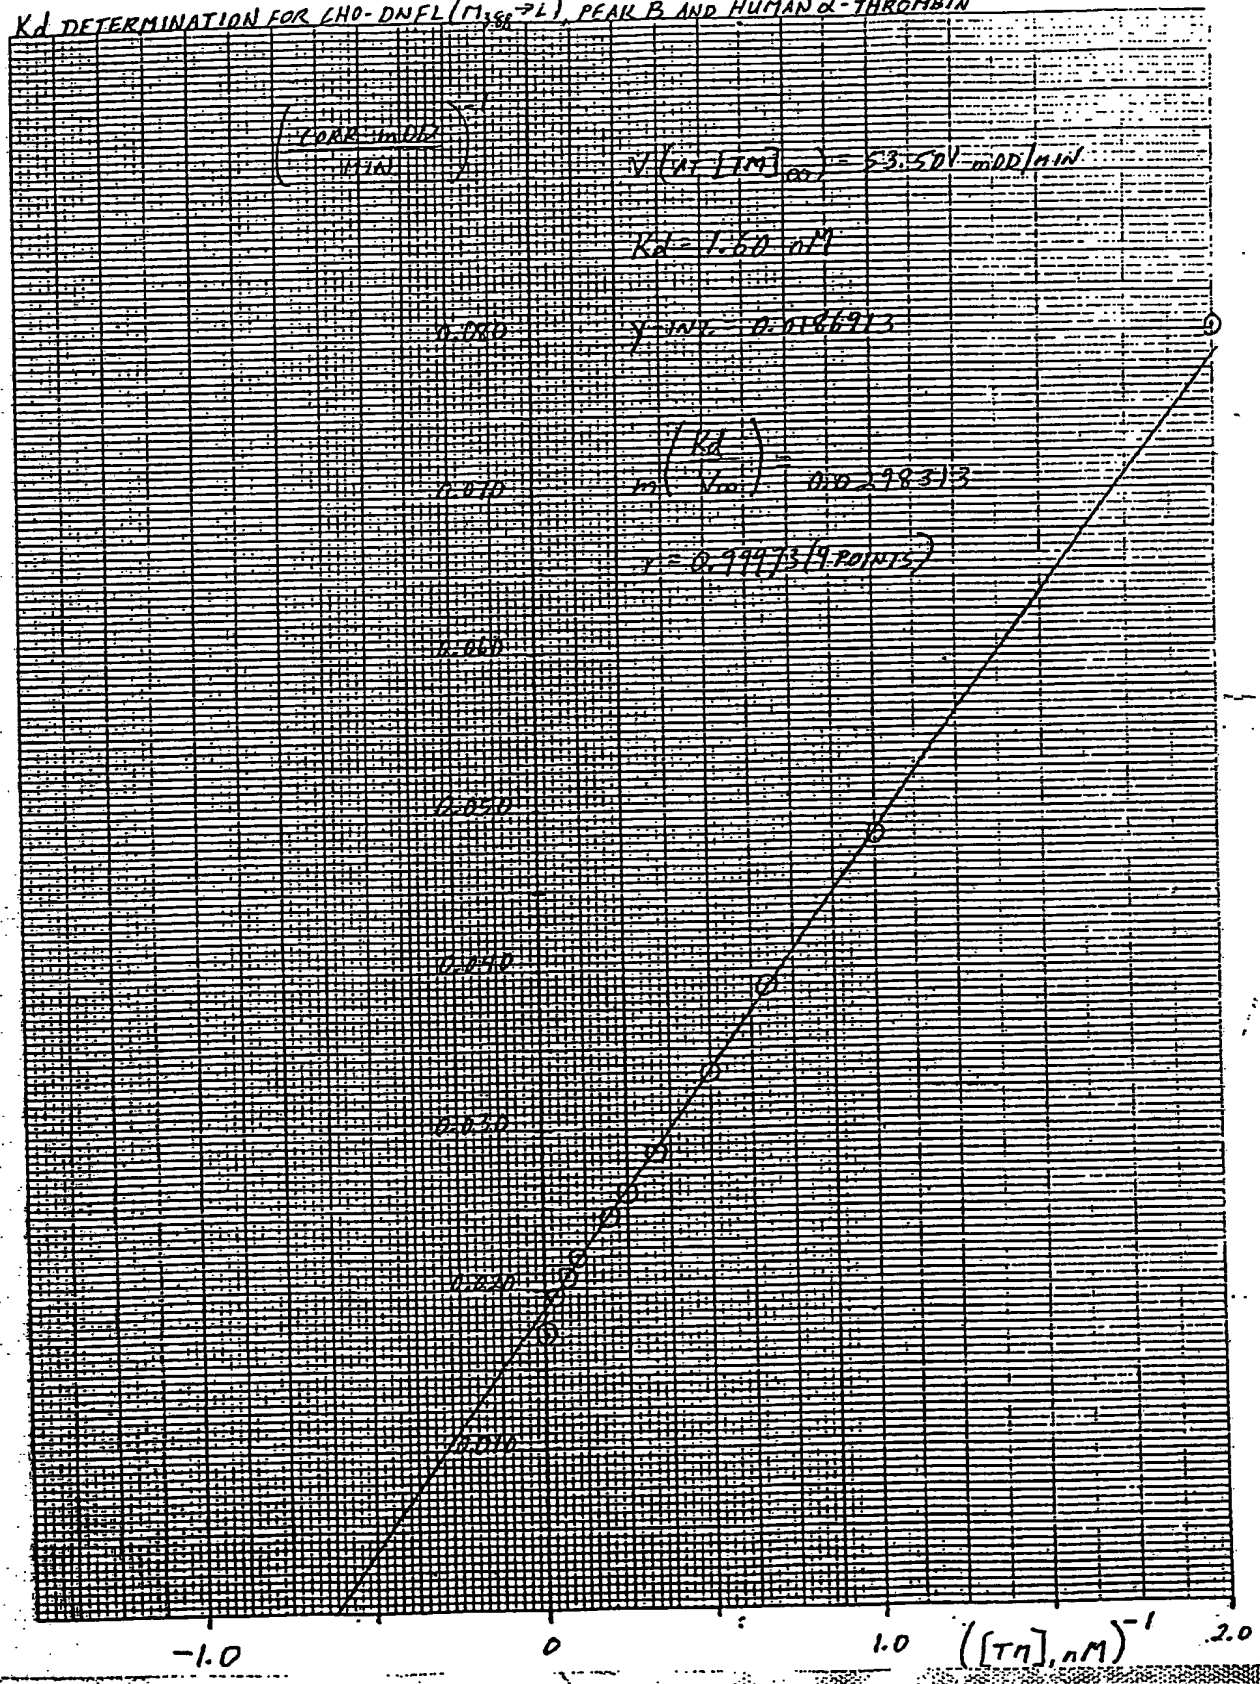 Kd DETERMINATION FOR CHO-DNFL (M388→L), PEAK B AND HUMAN α-THROMBIN
(CORR mOD / MIN)^-1
V (AT [TM]∞) = 53.501 mOD/MIN
Kd = 1.60 nM
0.080
y INT. = 0.0186913
m (Kd / V∞) = 0.0298313
0.070
r = 0.99973 (9 POINTS)
0.060
0.050
0.040
0.030
0.020
0.010
-1.0 0 1.0 ([TM], nM)^-1 2.0